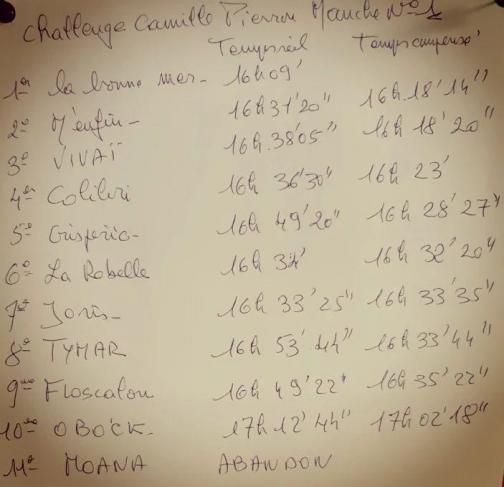 Challenge Camille Pierron Manche N°1
Temps réel Temps compensé
1er la bonne mer- 16h09' 16h.18'14"
2e M'enfin- 16h31'20" 16h 18'20"
3e VIVAÏ 16h.38'05" 16h 23'
4e Colibri 16h 36'30" 16h 28'27"
5e 16h 49'20" 16h 32'20"
6e La Rabelle 16h 34' 16h 33'35"
7e Joris- 16h 33'25" 16h 33'44"
8e TYMAR 16h 53'44" 16h 35'22"
9me Floscalou 16h 49'22" 17h 02'18"
10me OBOCK- 17h 12'44"
11e MOANA ABANDON